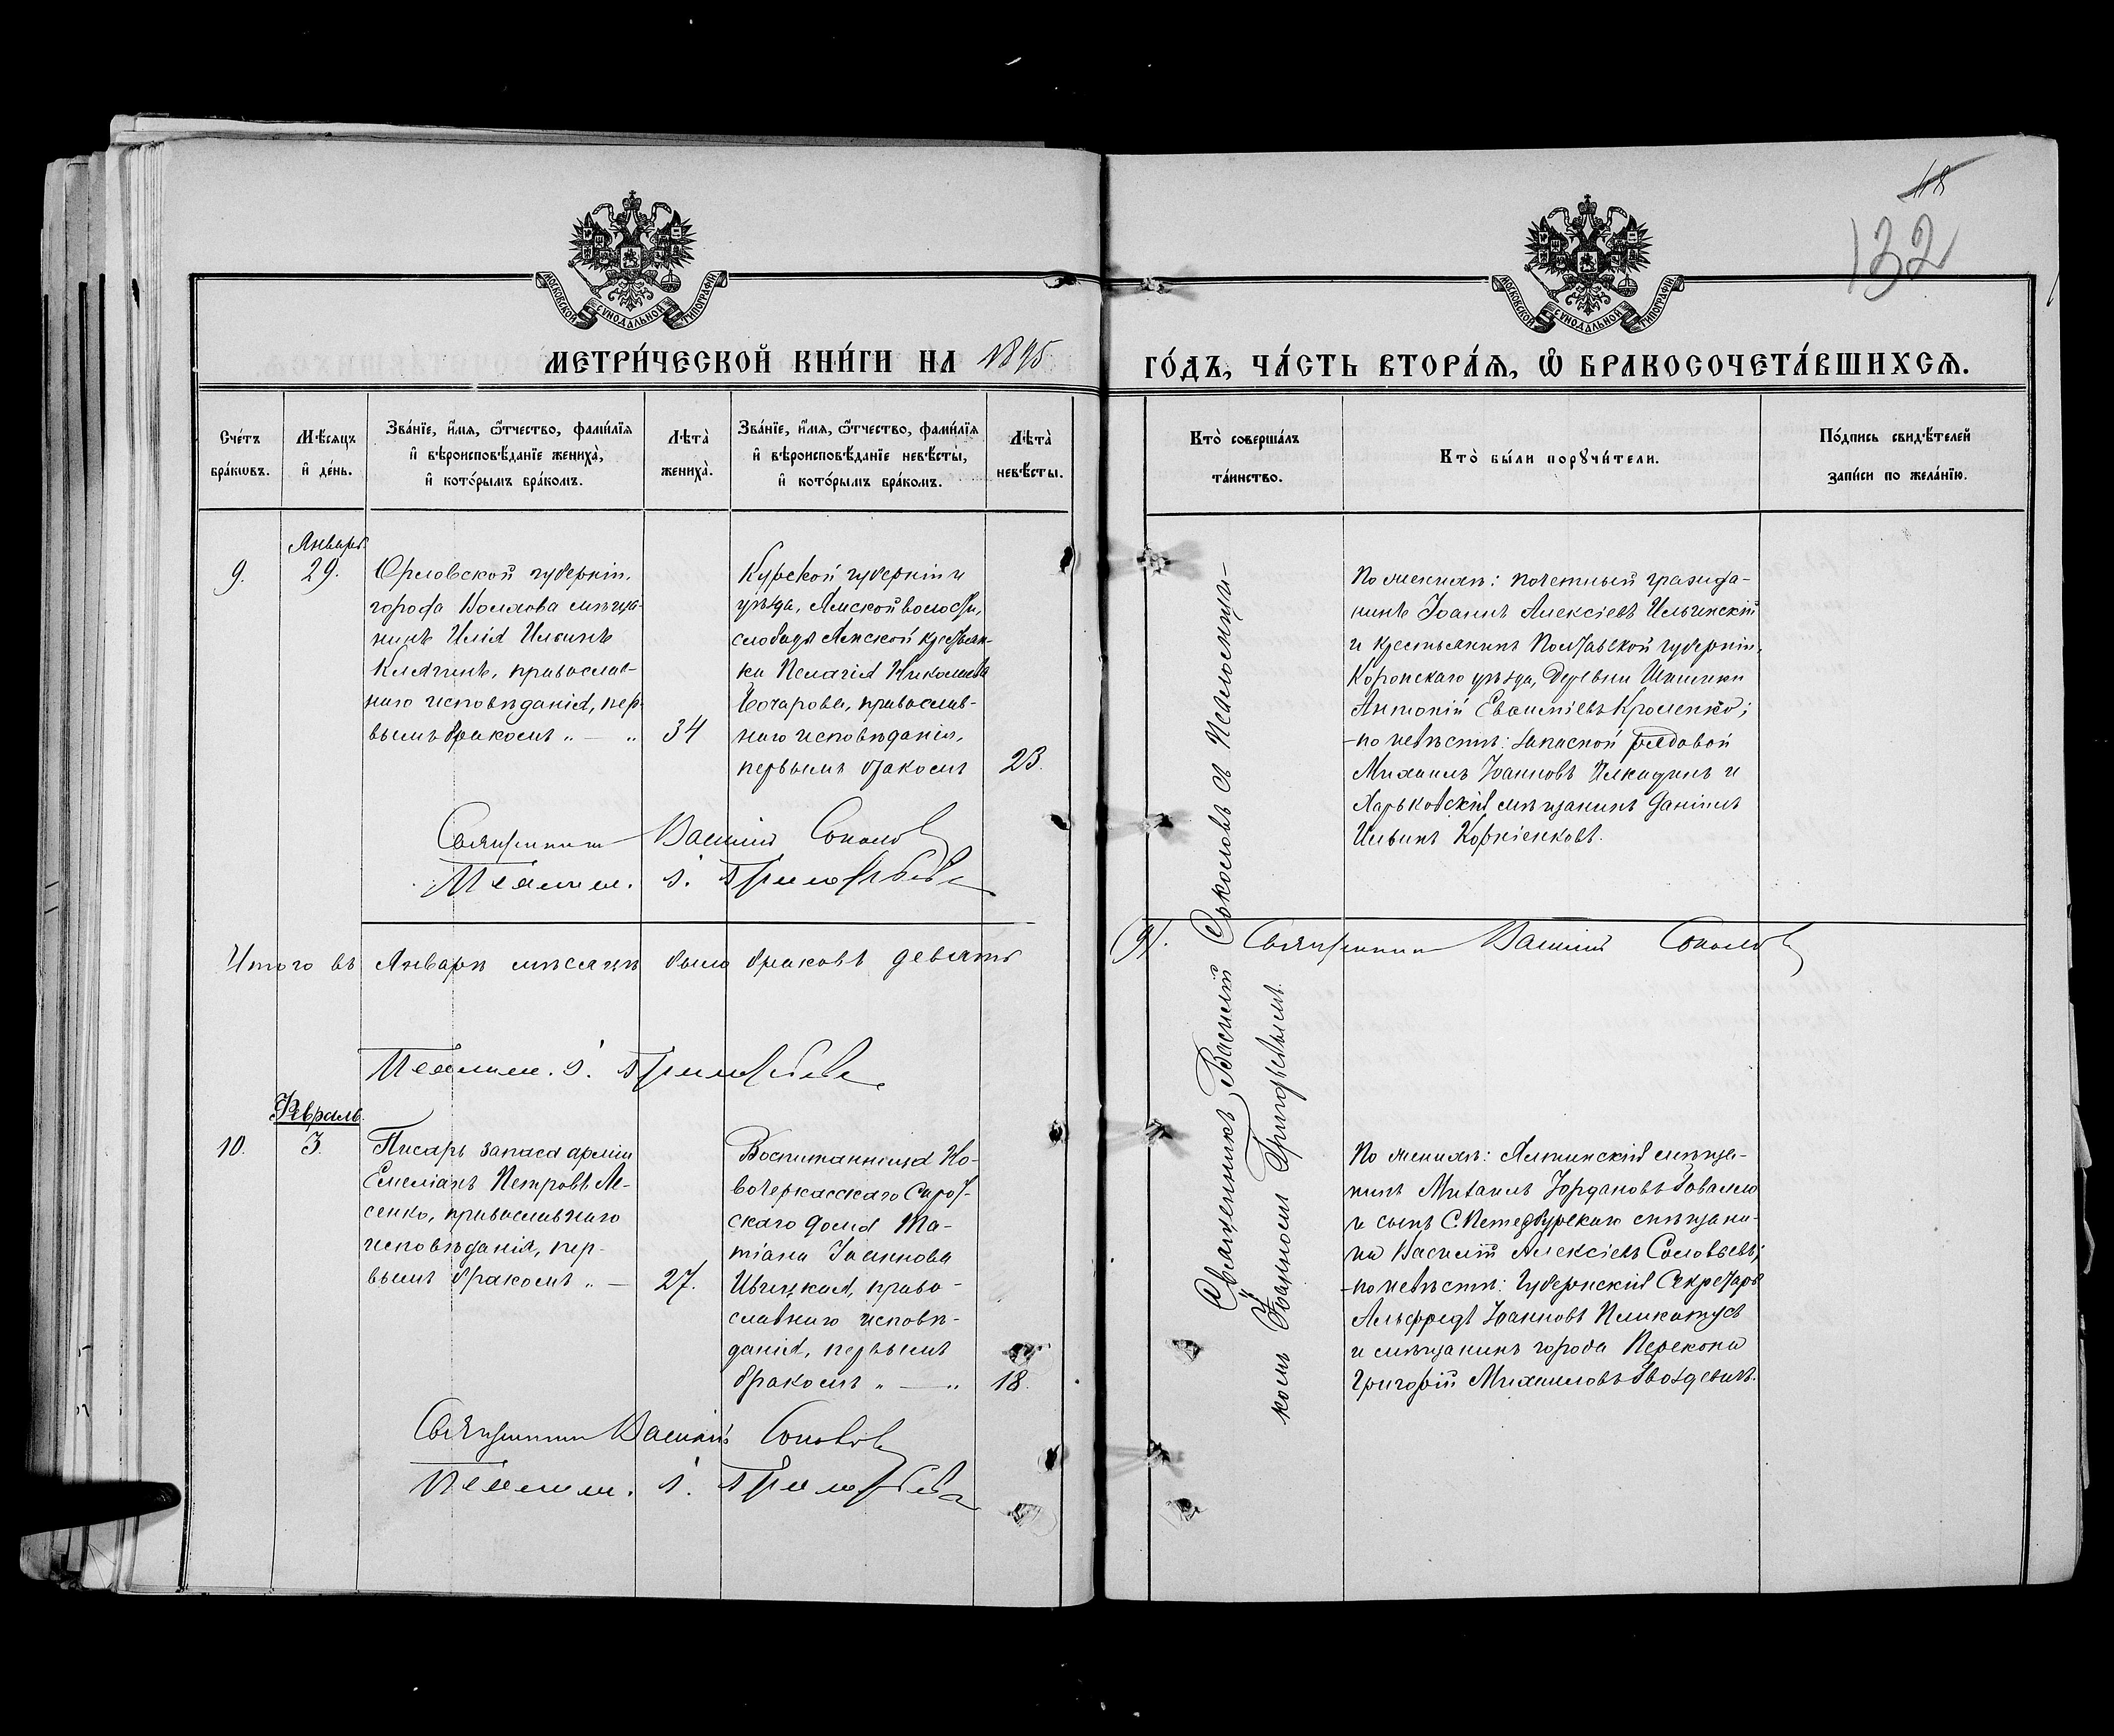 48
132
МОСКОВСКОЙ СѴНОДАЛЬНОЙ ТИПОГРАФІИ
МОСКОВСКОЙ СѴНОДАЛЬНОЙ ТИПОГРАФІИ
МЕТРИ́ЧЕСКОЙ КНИ́ГИ НА 1895 ГО́ДЪ, ЧА́СТЬ ВТОРА́Ѧ, Ѽ БРАКОСОЧЕТА́ВШИХСѦ.
Сче́тъ бра́кѡвъ.
Мѣ́сяцъ и҆ де́нь.
Зва́нїе, и҆́мя, ѻ҆́тчество, фами́лїя
и҆ вѣроисповѣ́данїе жениха̀,
и҆ кото́рымъ бра́комъ.
Лѣта̀ жениха̀.
Зва́нїе, и҆́мя, ѻ҆́тчество, фами́лїя
и҆ вѣроисповѣ́данїе невѣ́сты,
и҆ кото́рымъ бра́комъ.
Лѣта̀ невѣ́сты.
Кто̀ соверша́лъ та́инство.
Кто̀ бы́ли порꙋчи́тели.
По́дпись свидѣ́телей
за́писи по жела́нїю.
9.
Январь
29.
Орловской губерніи,
города Болхова мѣща-
нинъ Илія Ильинъ
Клягинъ, православ-
наго исповѣданія, пер-
вымъ бракомъ „ — „
34
Курской губерніи и
уѣзда, Ямской волости,
слободы Ямской крестьян-
ка Пелагія Николаева
Бочарова, православ-
наго исповѣданія,
первымъ бракомъ
23.
По женихѣ: почетный гражда-
нинъ Іоаннъ Алексіевъ Ильинскій
и крестьянинъ Полтавской губерніи,
уѣзда, деревни
Антоній
-по невѣстѣ: запасной рядовой
Михаилъ Іоанновъ и
Харьковскій мѣщанинъ Даніилъ
Ильинъ Корніенковъ.
Священникъ Василій Соколовъ
Псаломщ. І. Григорьевъ
Итого въ Январѣ мѣсяцѣ было браковъ девять (9).
Священникъ Василій Соколовъ
Псаломщ. І. Григорьевъ
Священникъ Василій Соколовъ съ Псаломщи-
комъ Іоанномъ Григорьевымъ.
Февраль.
10.
3.
Писарь запаса арміи
Емеліанъ Петровъ Ле-
сенко, православнаго
исповѣданія, пер-
вымъ бракомъ „ —
27.
Воспитанница Но-
вочеркасскаго Сирот-
скаго дома Та-
тіана Іоаннова
Ивицкая, право-
славнаго исповѣ-
данія, первымъ
бракомъ „ — „
18.
По женихѣ: Ялтинскій мѣща-
нинъ Михаилъ Іордановъ
и сынъ С.Петербургскаго мѣщани-
на Василій Алексіевъ Соловьевъ;
-по невѣстѣ: Губернскій Секретарь
Альфредъ Іоанновъ
и мѣщанинъ города Перекопа
Григорій Михаиловъ Гвоздевичъ.
Священникъ Василій Соколовъ
Псаломщ. І. Григорьевъ